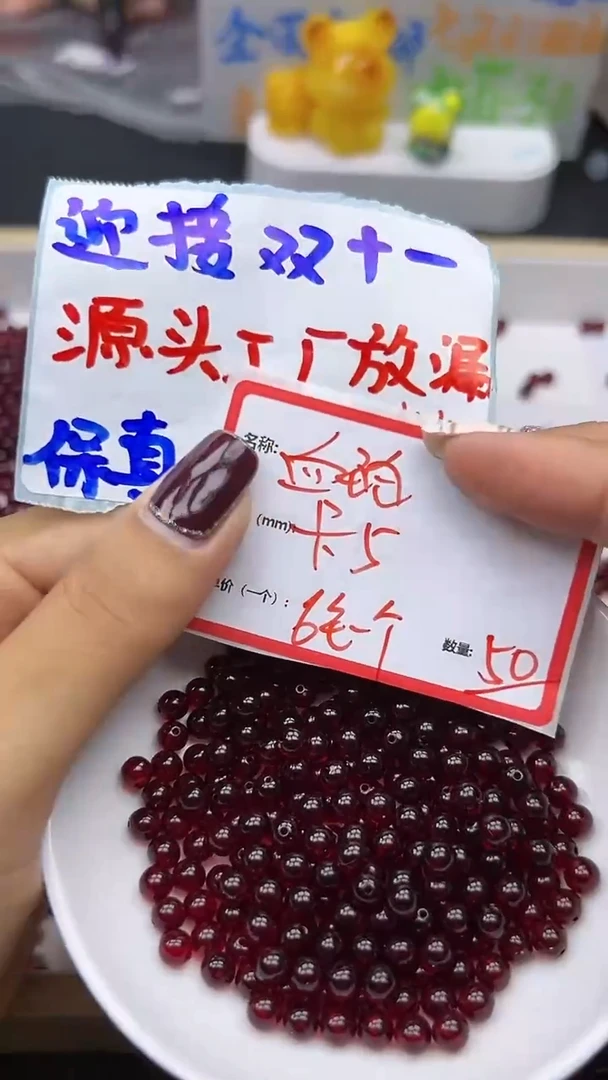 迎接双十一
源头工厂放漏
保真
名称: 血珀
(mm): 卡5
价(一个): 6毛一个
数量: 50